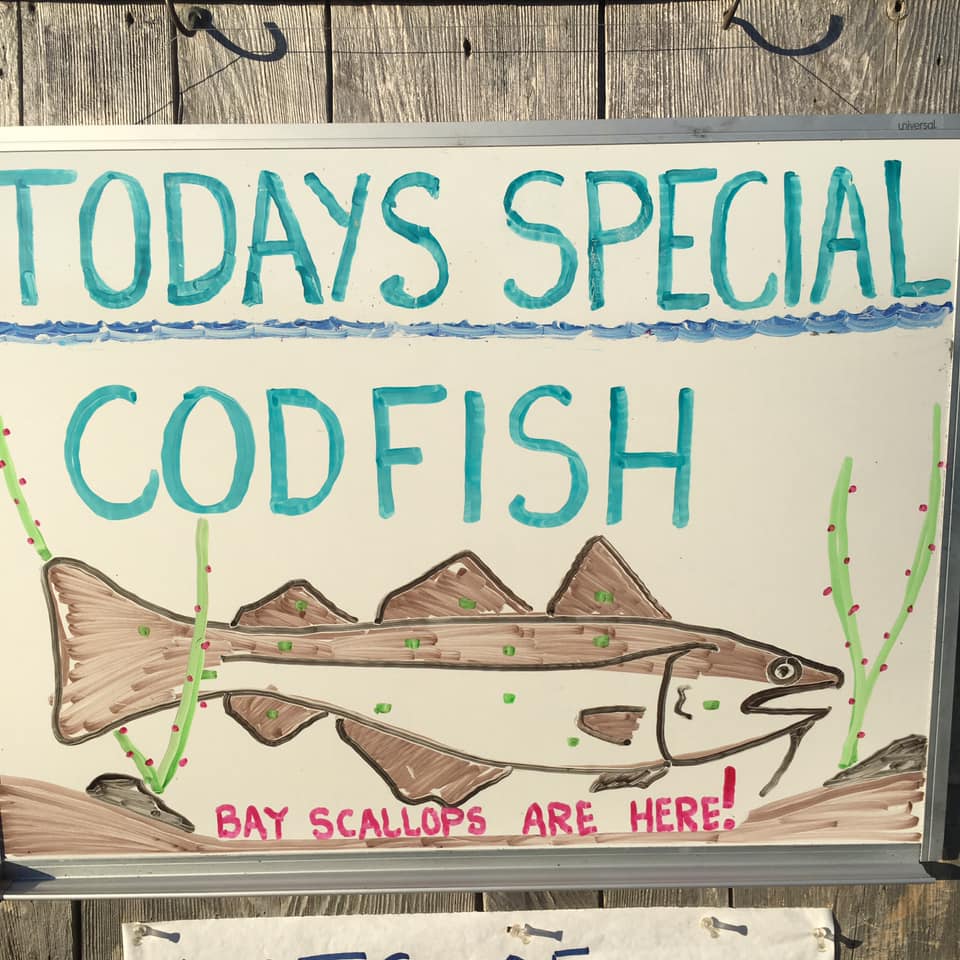 universal
TODAYS SPECIAL
CODFISH
BAY SCALLOPS ARE HERE!